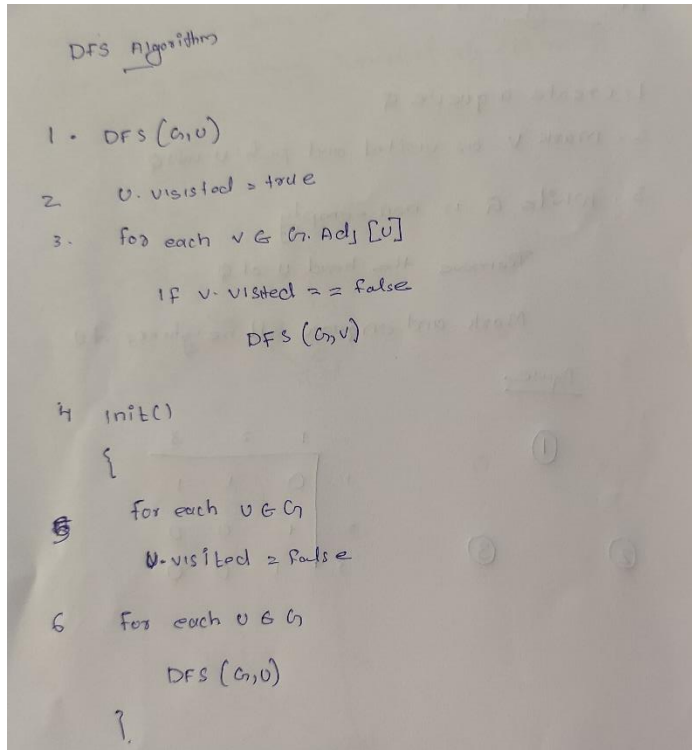 DFS Algorithm
1. DFS (G,U)
2 U. visisted = true
3. for each v ∈ G. Adj [U]
If v. visited == false
DFS (G,v)
4 init()
{
5 for each U ∈ G
U.visited = false
6 for each U ∈ G
DFS (G,U)
}